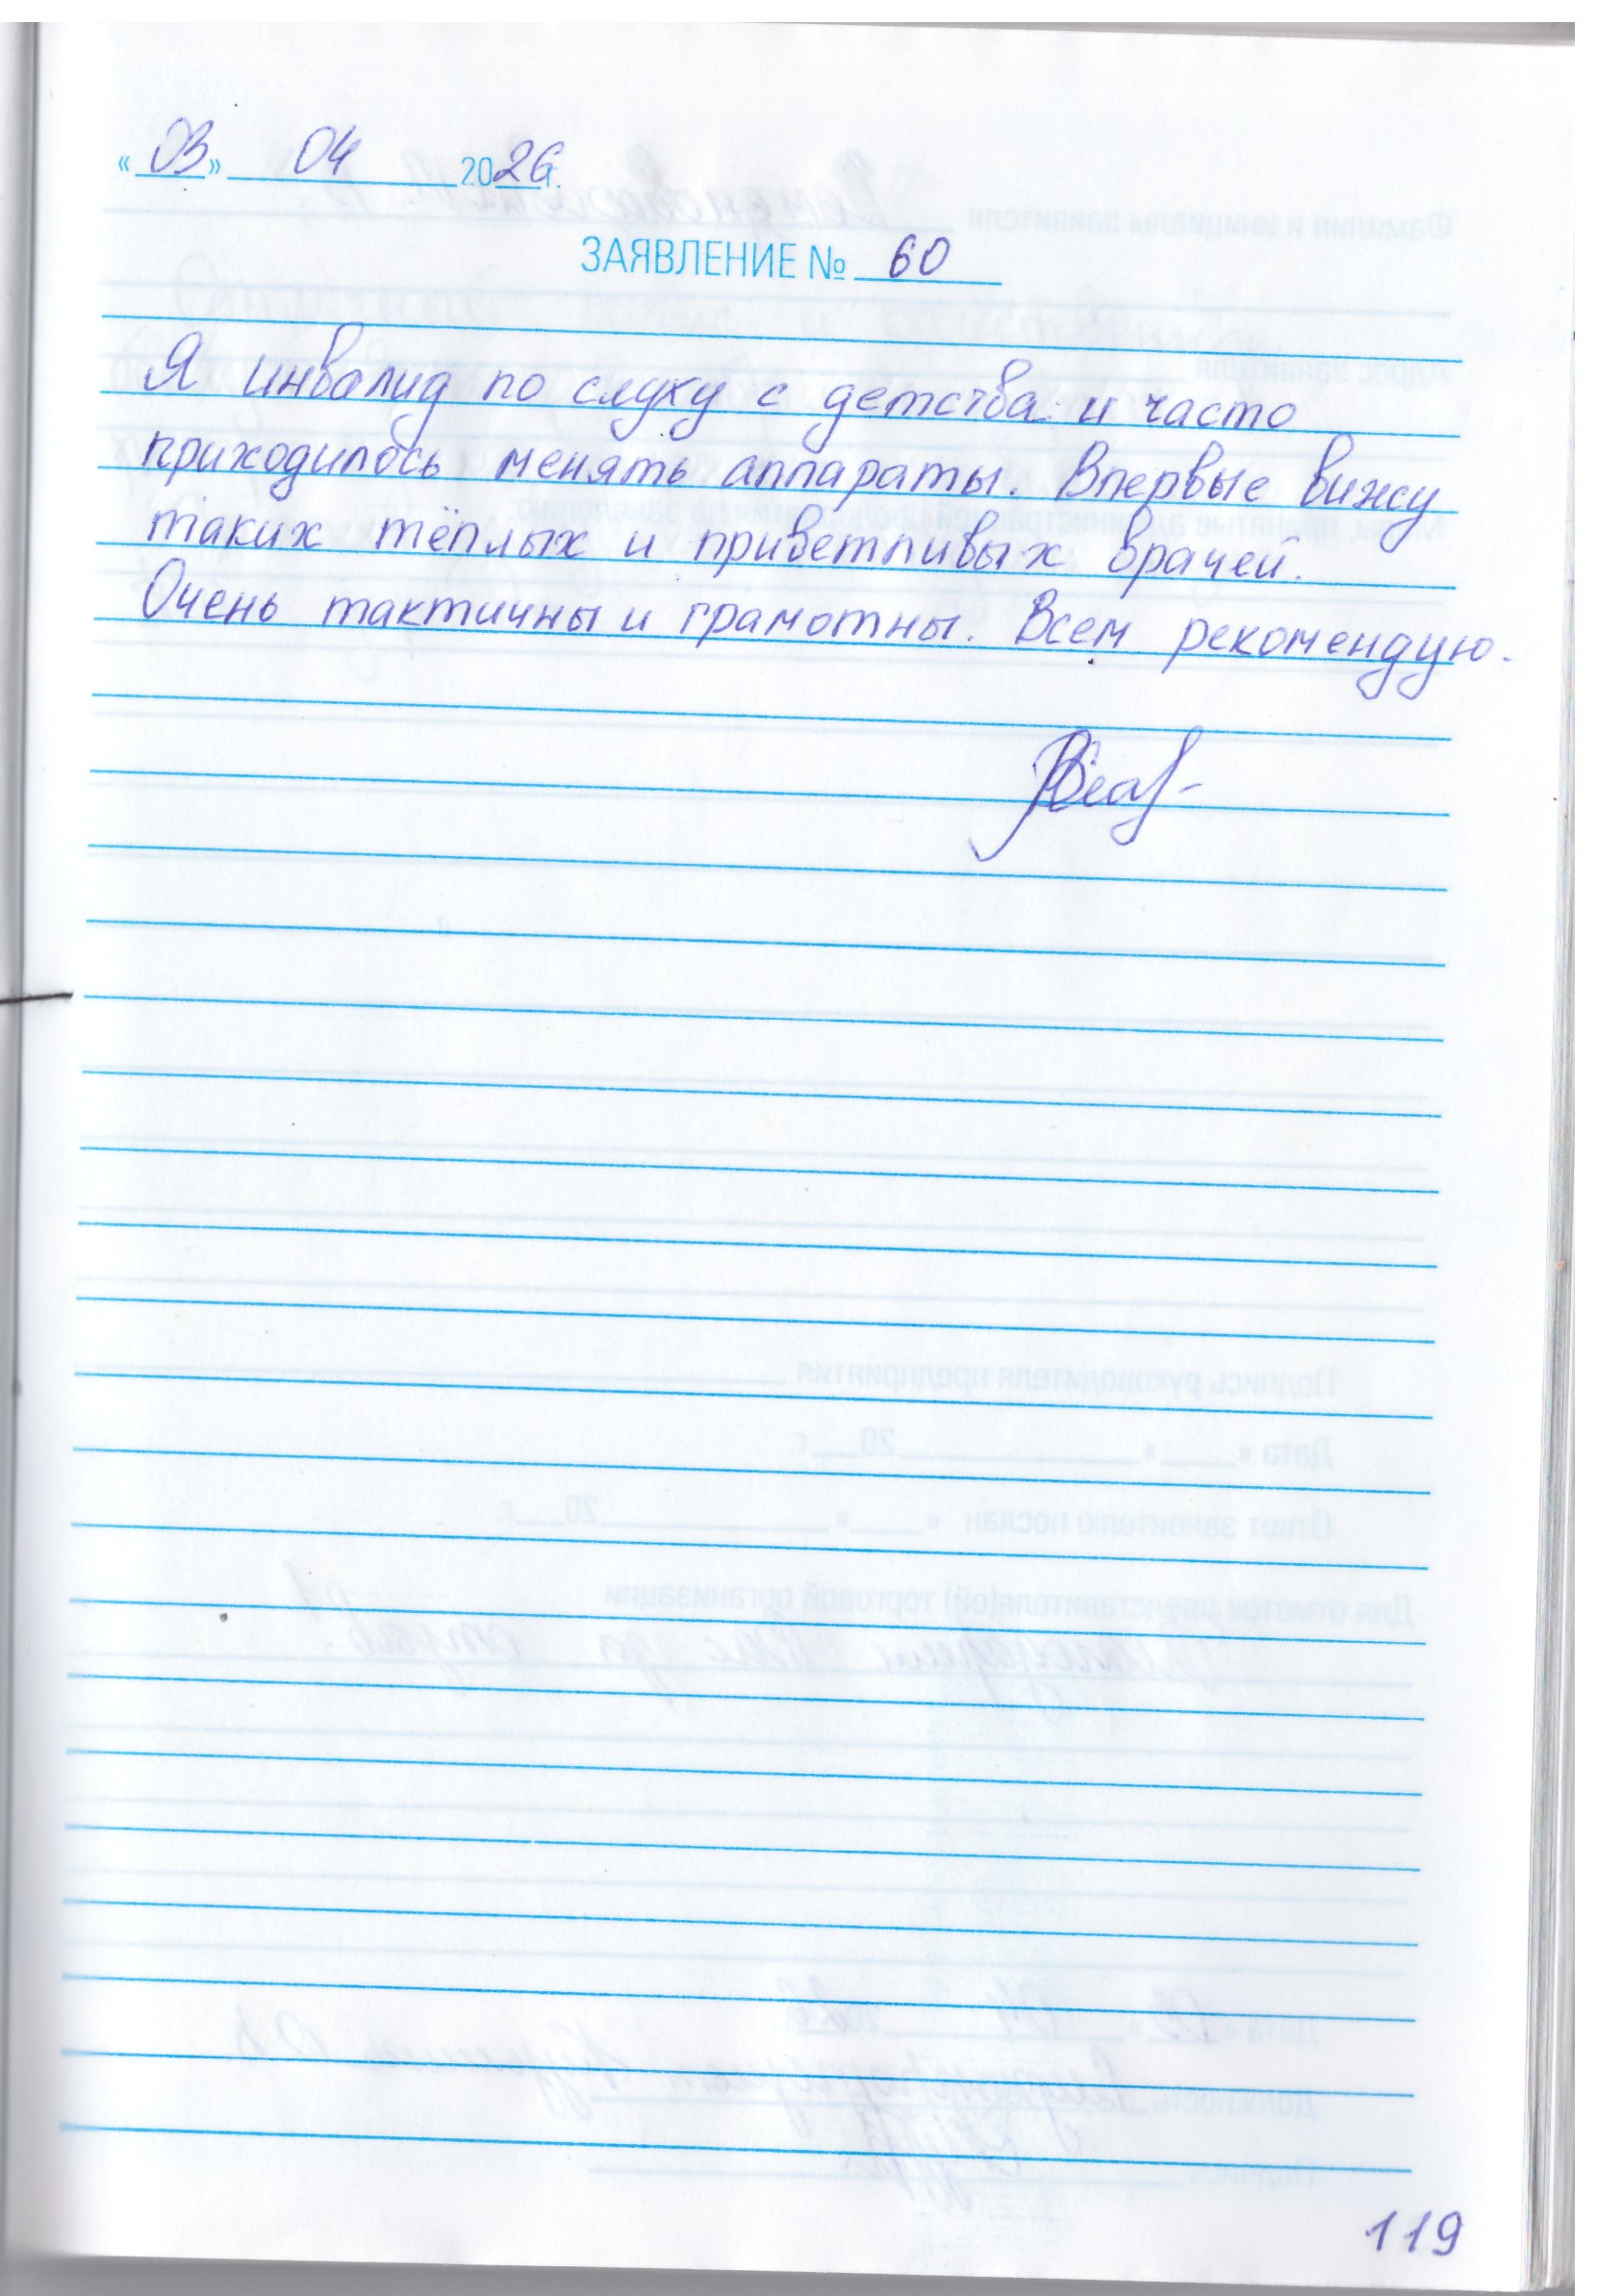 «03» 04 2026 г.
ЗАЯВЛЕНИЕ № 60
Я инвалид по слуху с детства и часто
приходилось менять аппараты. Впервые вижу
таких тёплых и приветливых врачей.
Очень тактичны и грамотны. Всем рекомендую.
119